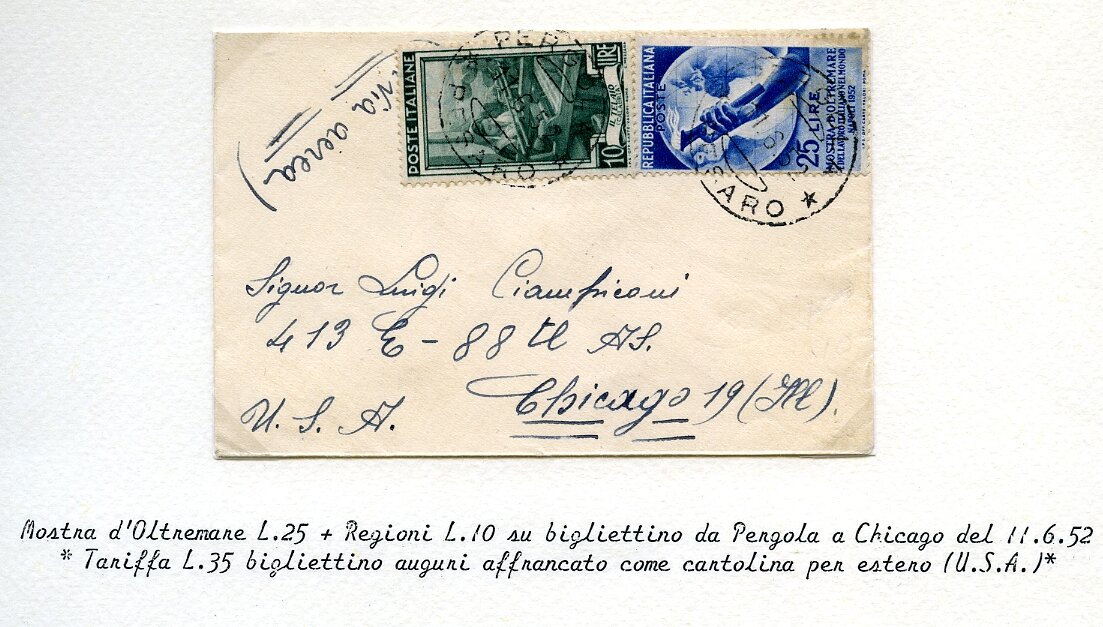 Via aerea
POSTE ITALIANE
LIRE
10
REPUBBLICA ITALIANA
POSTE
25 LIRE
MOSTRA D'OLTREMARE
E DEL LAVORO ITALIANO NEL MONDO
NAPOLI 1952
PERGOLA
PESARO
SARO *
Signor Luigi Ciampiconi
413 E - 88 th
Chicago 19 (Ill).
U. S. A.
Mostra d'Oltremare L.25 + Regioni L.10 su bigliettino da Pergola a Chicago del 11.6.52
* Tariffa L.35 bigliettino auguri affrancato come cartolina per estero (U.S.A.)*